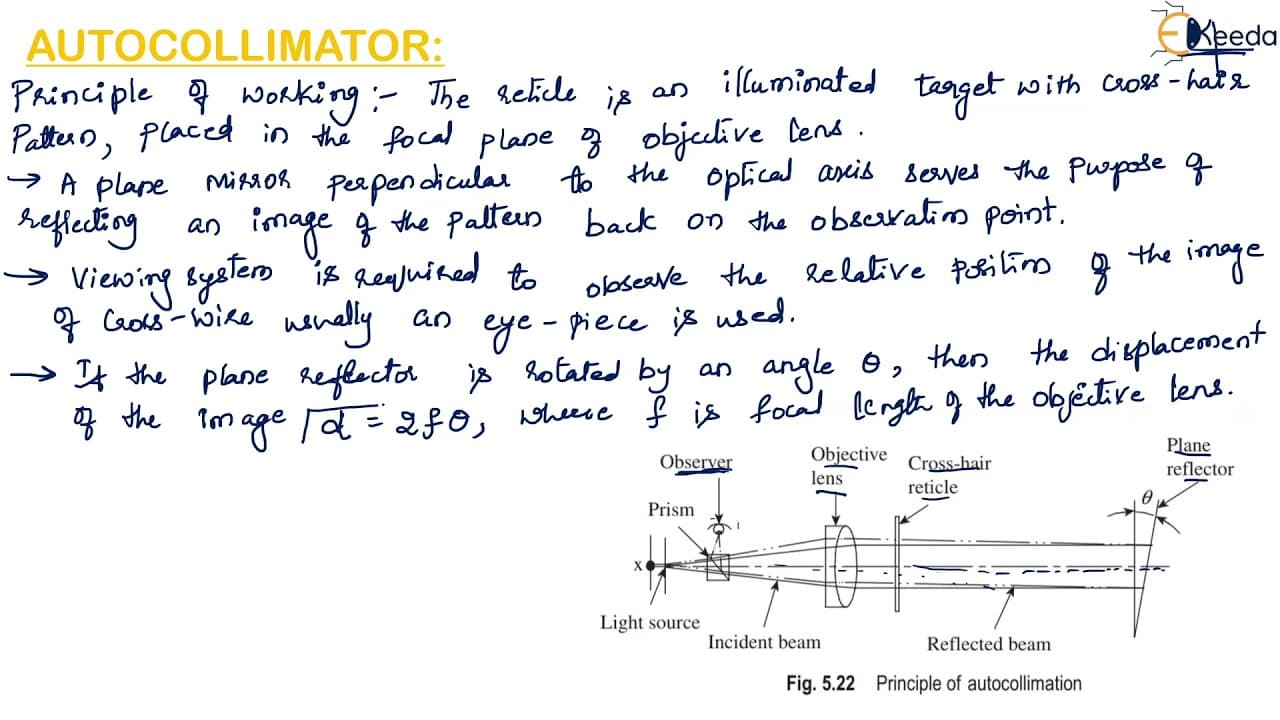 AUTOCOLLIMATOR:
EKeeda
Principle of working :- The reticle is an illuminated target with cross-hair
Pattern, placed in the focal plane of objective lens.
→ A plane mirror perpendicular to the optical axis serves the purpose of
reflecting an image of the pattern back on the observation point.
→ Viewing system is required to observe the relative position of the image
of cross-wire usually an eye-piece is used.
→ If the plane reflector is rotated by an angle θ, then the displacement
of the image d = 2fθ, where f is focal length of the objective lens.
Observer
Objective
lens
Cross-hair
reticle
Plane
reflector
Prism
θ
x
Light source
Incident beam
Reflected beam
Fig. 5.22 Principle of autocollimation